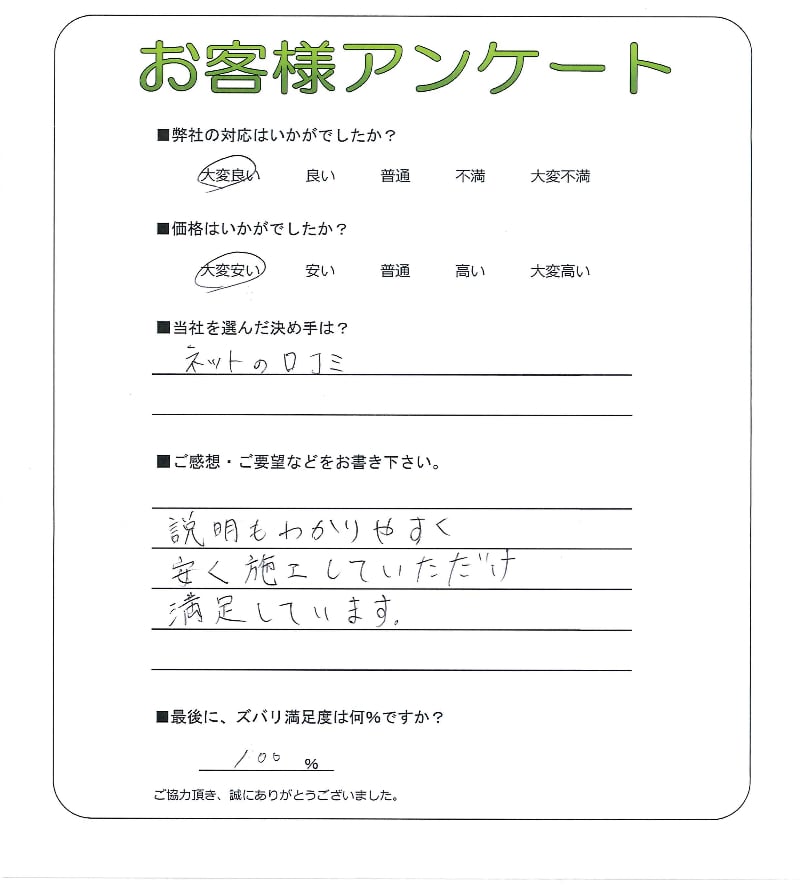 お客様アンケート
■弊社の対応はいかがでしたか？
大変良い 良い 普通 不満 大変不満
■価格はいかがでしたか？
大変安い 安い 普通 高い 大変高い
■当社を選んだ決め手は？
ネットの口コミ
■ご感想・ご要望などをお書き下さい。
説明もわかりやすく
安く施工していただけ
満足しています。
■最後に、ズバリ満足度は何%ですか？
100 %
ご協力頂き、誠にありがとうございました。